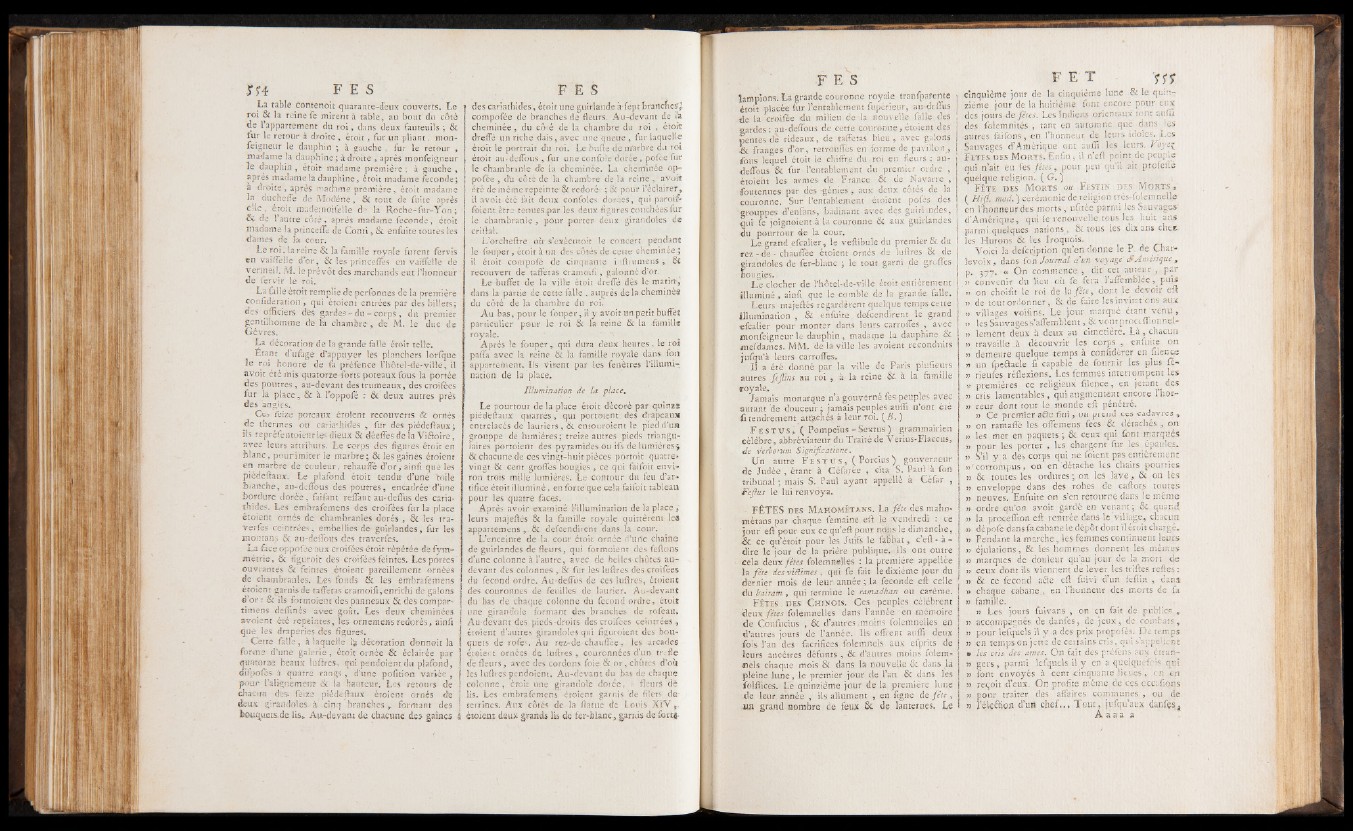 554 F E S
La table contenoit quarante-deux couverts. Le
roi & la reine se mirent à table, au bout du côté
de l'appartement du roi, dans deux fauteuils ; &
sur le retour à droite, étoit, sur un pliant, mon-
seigneur le dauphin ; à gauche, sur le retour,
madame la dauphine ; à droite, après monseigneur
le dauphin, étoit madame première ; à gauche,
après madame la dauphine, étoit madame seconde ;
à droite, après madame première, étoit madame
la duchesse de Modène, & tout de suite après
elle, étoit mademoiselle de la Roche-sur-Yon ;
& de l'autre côté, après madame seconde, étoit
madame la princesse de Conti, & ensuite toutes les
dames de la cour.
Le roi, la reine & la famille royale furent servis
en vaisselle d'or, & les princesses en vaisselle de
vermeil. M. le prévôt des marchands eut l'honneur
de servir le roi.
La salle étoit remplie de personnes de la première
considération, qui étoient entrées par des billets ;
des officiers des gardes-du-corps, du premier
gentilhomme de la chambre, de M. le duc de
Gêvres.
La décoration de la grande salle étoit telle.
Étant d'usage d'appuyer les planchers lorsque
le roi honore de sa présence l'hôtel-de-ville, il
avoit été mis quatorze forts poteaux sous la portée
des poutres, au-devant des trumeaux, des croisées
sur la place, & à l'opposé : & deux autres près
des angles.
Ces seize poteaux étoient recouverts & ornés
de thermes ou cariathides, sur des piédestaux ;
ils représentoient les dieux & déesses de la Victoire,
avec leurs attributs. Le corps des figures étoit en
blanc, pour imiter le marbre ; & les gaînes étoient
en marbre de couleur, rehaussé d'or, ainsi que les
piédestaux. Le plafond étoit tendu d'une toile
blanche, au-dessous des poutres, encadrée d'une
bordure dorée, faisant ressaut au-dessus des caria-
thides. Les embrasemens des croisées sur la place
étoient ornés de chambranles dorés, & les tra-
verses ceintrées, embellies de guirlandes, sur les
montans & au-dessous des traverses.
La face opposée aux croisées étoit répétée de sym-
métrie, & figuroit des croisées feintes. Les portes
ouvrantes & feintes étoient pareillement ornées
de chambranles. Les fonds & les embrasemens
étoient garnis de taffetas cramoisi, enrichi de galons
d'or : & ils formoient des panneaux & des compar-
timens dessinés avec goût. Les deux cheminées
avoient été repeintes, les ornemens redorés, ainsi
que les draperies des figures.
Cette salle, à laquelle la décoration donnoit la
forme d'une galerie, étoit ornée & éclairée par
quatorze beaux lustres, qui pendoient du plafond,
disposés à quatre rangs, d'une position variée,
pour l'alignement & la hauteur. Les retours de
chacun des seize piédestaux étoient ornés de
deux girandoles à cinq branches, formant des
bouquets de lis. Au-devant de chacune des gaînes
F E S
des cariathides, étoit une guirlande à sept branches,
composée de branches de fleurs. Au-devant de la
cheminée, du côté de la chambre du roi, étoit
dressé un riche dais, avec une queue, sur laquelle
étoit le portrait du roi. Le buste de marbre du roi
étoit au-dessous, sur une console dorée, posée sur
le chambranle de la cheminée. La cheminée op-
posée, du côté de la chambre de la reine, avoit
été de même repeinte & redoré ; & pour l'éclairer,
il avoit été fait deux consoles dorées, qui parois-
soient être tenues par les deux figures couchées sur
le chambranle, pour porter deux girandoles de
cristal.
L'orchestre où s'exécutoit le concert pendant
le souper, étoit à un des côtés de cette cheminée ;
il étoit composé de cinquante instrumens, &
recouvert de taffetas cramoisi, galonné d'or.
Le buffet de la ville étoit dressé dès le matin,
dans la partie de cette salle, auprès de la cheminée
du côté de la chambre du roi.
Au bas, pour le souper, il y avoit un petit buffet
particulier pour le roi & la reine & la famille
royale.
Après le souper, qui dura deux heures, le roi
passa avec la reine & la famille royale dans son
appartement. Ils virent par les fenêtres l'illumi-
nation de la place.
Illumination de la place.
Le pourtour de la place étoit décoré par quinze
piédestaux quarrés, qui portoient des drapeaux
entrelacés de lauriers, & entouroient le pied d'un
grouppe de lumières ; treize autres pieds triangu-
laires portoient des pyramides ou ifs de lumières ;
& chacune de ces vingt-huit pièces portoit quatre-
vingt & cent grosses bougies, ce qui faisoit envi-
ron trois mille lumières. Le contour du feu d'ar-
tifice étoit illuminé, en sorte que cela faisoit tableau
pour les quatre faces.
Après avoir examiné l'illumination de la place,
leurs majestés & la famille royale quittèrent les
appartemens, & descendirent dans la cour.
L'enceinte de la cour étoit ornée d'une chaîne
de guirlandes de fleurs, qui formoient des festons
d'une colonne à l'autre, avec de belles chûtes au-
devant des colonnes, & sur les lustres des croisées
du second ordre. Au-dessus de ces lustres, étoient
des couronnes de feuilles de laurier. Au-devant
du bas de chaque colonne du second ordre, étoit
une girandole formant des branches de roseau.
Au-devant des pieds-droits des croisées ceintrées,
étoient d'autres girandoles qui figuroient des bou-
quets de roses. Au rez-de chaussée, les arcades
étoient ornées de lustres, couronnées d'un trefle
de fleurs, avec des cordons soie & or, chûtes d'où
les lustres pendoient. Au-devant du bas de chaque
colonne, étoit une girandole dorée, à fleurs de
lis. Les embrasemens étoient garnis de filets de
terrines. Aux côtés de la statue de Louis XIV,
étoient deux grands lis de fer-blanc, garnis de forts
F E S
lampions. La grande couronne royale transparente
étoit placée sur l'entablement supérieur, au-dessus
de la croisée du milieu de la nouvelle salle des
gardes : au-dessous de cette couronne, étoient des
pentes de rideaux, de taffetas bleu, avec galons
& franges d'or, retroussés en forme de pavillon,
sous lequel étoit le chiffre du roi en fleurs : au-
dessous & sur l'entablement du premier ordre,
étoient les armes de France & de Navarre,
soutenues par des génies, aux deux côtés de la
couronne. Sur l'entablement étoient posés des
grouppes d'enfans, badinant avec des guirlandes,
qui se joignoient à la couronne & aux guirlandes
du pourtour de la cour.
Le grand escalier, le vestibule du premier & du
rez-de-chaussée étoient ornés de lustres & de
girandoles de fer-blanc ; le tout garni de grosses
bougies.
Le clocher de l'hôtel-de-ville étoit entièrement
illuminé, ainsi que le comble de la grande salle.
Leurs majestés regardèrent quelque temps cette
illumination, & ensuite descendirent le grand
escalier pour monter dans leurs carrosses, avec
monseigneur le dauphin, madame la dauphine &
mesdames. MM. de la ville les avoient reconduits
jusqu'à leurs carrosses.
Il a été donné par la ville de Paris plusieurs
autres festins au roi, à la reine & à la famille
royale.
Jamais monarque n'a gouverné ses peuples avec
autant de douceur ; jamais peuples aussi n'ont été
si tendrement attachés à leur roi. (B.)
FESTUS, (Pompeïus-Sextus) grammairien
célèbre, abbréviateur du Traité de Verrius-Flaccus,
de Verborum Significatione.
Un autre FESTUS, (Porcius) gouverneur
de Judée, étant à Césarée, cita S. Paul à son
tribunal ; mais S. Paul ayant appellé à César,
Festus le lui renvoya.
FÊTES DES MAHOMÉTANS. La fête des maho-
métans par chaque semaine est le vendredi : ce
jour est pour eux ce qu'est pour nous le dimanche,
& ce qu'étoit pour les Juifs le sabbat, c'est-à-
dire le jour de la prière publique. Ils ont outre
cela deux fêtes solemnelles : la première appellée
la fête des victimes, qui se fait le dixième jour du
dernier mois de leur année ; la seconde est celle
du bairam, qui termine le ramadhan ou carême.
FÊTES DES CHINOIS. Ces peuples célèbrent
deux fêtes solemnelles dans l'année en mémoire
de Confucius, & d'autres moins solemnelles en
d'autres jours de l'année. Ils offrent aussi deux
fois l'an des sacrifices solemnels aux esprits de
leurs ancêtres défunts, & d'autres moins solem-
nels chaque mois & dans la nouvelle & dans la
pleine lune, le premier jour de l'an & dans les
solstices. Le quinzième jour de la première lune
de leur année, ils allument, en signe de fête,
un grand nombre de feux & de lanternes. Le
F E T 555
cinquième jour de la cinquième lune & le quin-
zième jour de la huitième sont encore pour eux
des jours de fêtes. Les Indiens orientaux font aussi
des solemnités, tant en automne que dans les
autres saisons, en l'honneur de leurs idoles. Les
Sauvages d'Amérique ont aussi les leurs. Voyez
FÊTES DES MORTS. Enfin, il n'est point de peuple
qui n'ait eu les fêtes, pour peu qu'il ait professé
quelque religion. (G.)
FÊTE DES MORTS ou FESTIN DES MORTS,
(Hist. mod.) cérémonie de religion très-solemnelle
en l'honneur des morts, usitée parmi les Sauvages
d'Amérique, qui se renouvelle tous les huit ans
parmi quelques nations, & tous les dix ans chez
les Hurons & les Iroquois.
Voici la description qu'en donne le P. de Char-
levoix, dans son Journal d'un voyage d'Amérique,
p. 377. « On commence, dit cet auteur, par
» convenir du lieu où se fera l'assemblée, puis
» on choisit le roi de la fête, dont le devoir est
» de tout ordonner, & de faire les invitations aux
» villages voisins. Le jour marqué étant venu,
» les Sauvages s'assemblent, & vont processionnel-
» lement deux à deux au cimetière. Là, chacun
» travaille à découvrir les corps, ensuite on
» demeure quelque temps à considérer en silence
» un spectacle si capable de fournir les plus sé-
» rieuses réflexions. Les femmes interrompent les
» premières ce religieux silence, en jetant des
» cris lamentables, qui augmentent encore l'hor-
» reur dont tout le monde est pénétré.
» Ce premier acte fini, on prend ces cadavres,
» on ramasse les ossemens secs & détachés, on
» les met en paquets ; & ceux qui sont marqués
» pour les porter, les chargent sur les épaules.
» S'il y a des corps qui ne soient pas entièrement
» corrompus, on en détache les chairs pourries
» & toutes les ordures ; on les lave, & on les
» enveloppe dans des robes de castors toutes
» neuves. Ensuite on s'en retourne dans le même
» ordre qu'on avoit gardé en venant ; & quand
» la procession est rentrée dans le village, chacun
» dépose dans sa cabane le dépôt dont il étoit chargé.
» Pendant la marche, les femmes continuent leurs
» éjulations, & les hommes donnent les mêmes
» marques de douleur qu'au jour de la mort de
» ceux dont ils viennent de lever les tristes restes :
» & ce second acte est suivi d'un festin, dans
» chaque cabane, en l'honneur des morts de sa
» famille.
» Les jours suivans, on en fait de publics,
» accompagnés de danses, de jeux, de combats,
» pour lesquels il y a des prix proposés. De temps
» en temps on jette de certains cris, qui s'appellent
» les cris des ames. On fait des présens aux étran-
» gers, parmi lesquels il y en a quelquefois qui
» sont envoyés à cent cinquante lieues, on en
» reçoit d'eux. On profite même de ces occasions
» pour traiter des affaires communes, ou de
» l'élection d'un chef... Tout, jusqu'aux danses,
A a a a 2